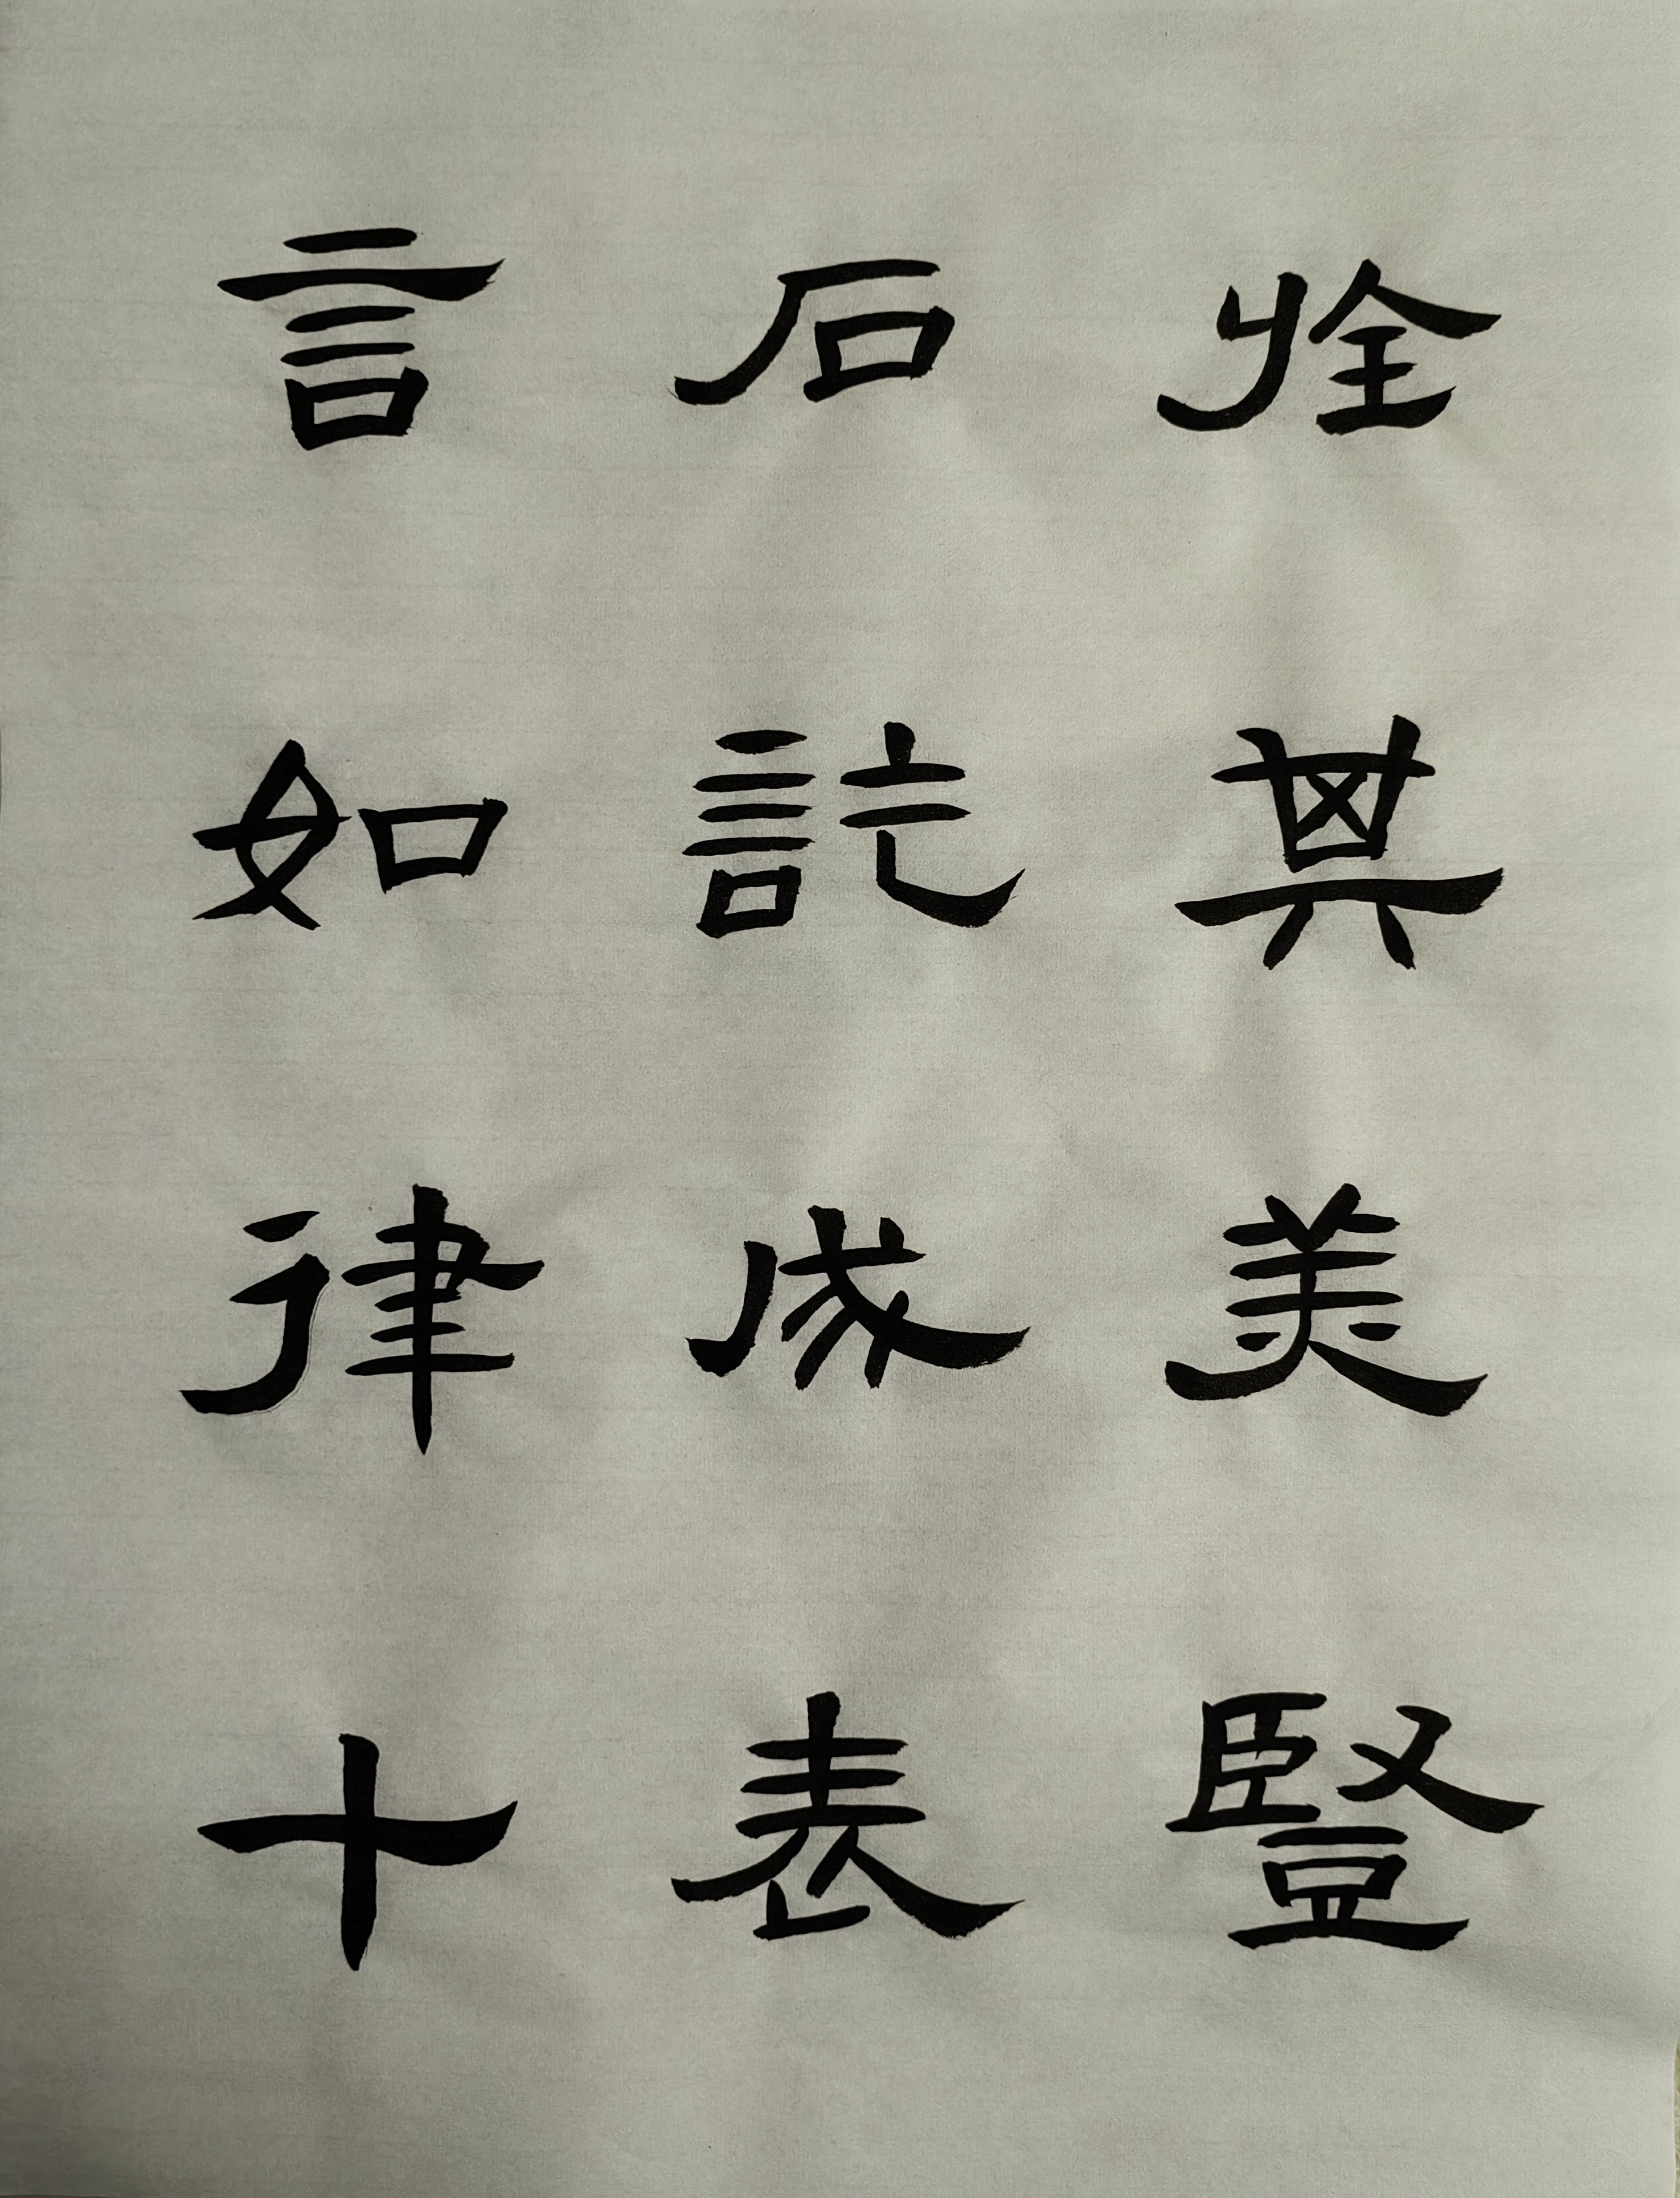 其美豎
石訖成表
言如律十